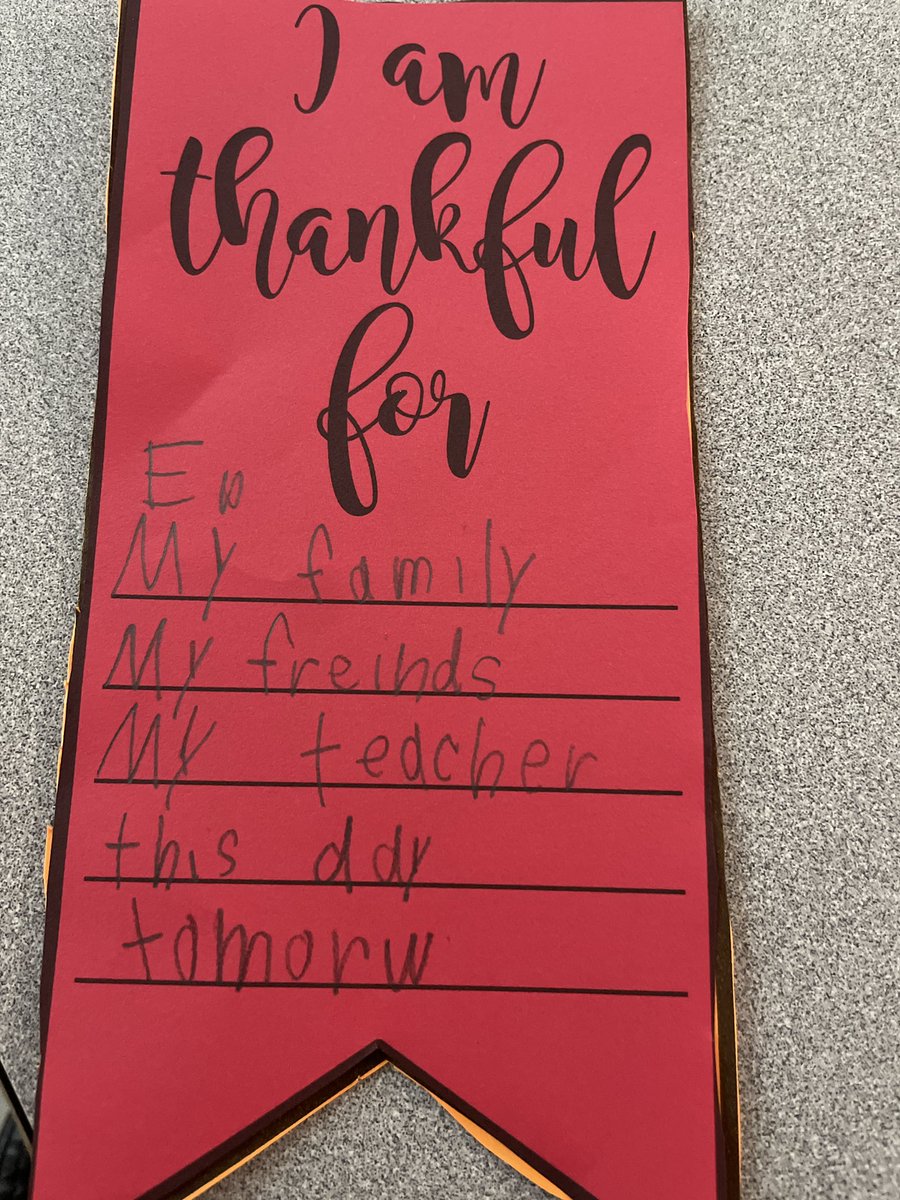 I am
thankful
for
My family
My freinds
My teacher
this day
tomorw